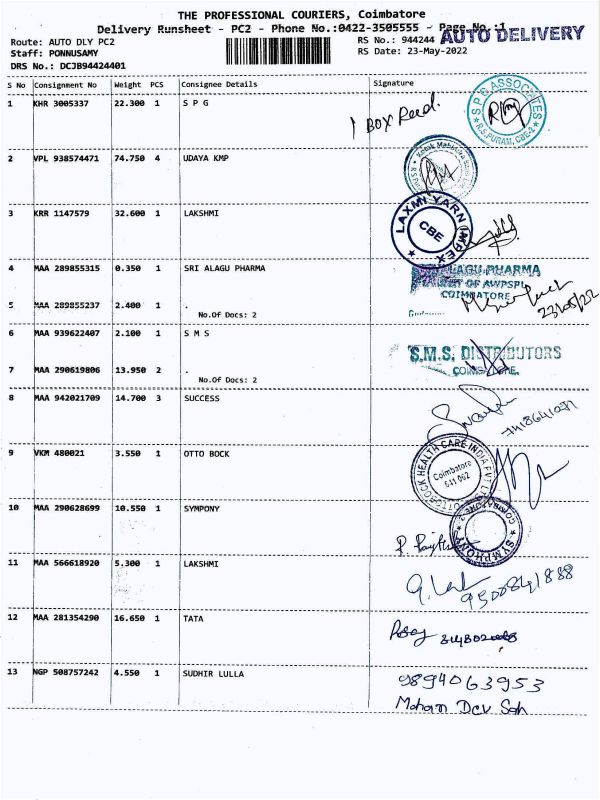 THE PROFESSIONAL COURIERS, Coimbatore
Delivery Runsheet - PC2 - Phone No.:0422-3505555 - Page No.:1
AUTO DELIVERY
Route: AUTO DLY PC2
RS No.: 944244
Staff: PONNUSAMY
RS Date: 23-May-2022
DRS No.: DCJB94424401
S No Consignment No Weight PCS Consignee Details Signature
1 KHR 3005337 22.300 1 S P G
1 BOX Recd.
S P G ASSOCIATES
R.S.PURAM, CBE-2
2 VPL 938574471 74.750 4 UDAYA KMP
Kotak Mahindra
3 KRR 1147579 32.600 1 LAKSHMI
LAXMI YARN IMPEX
CBE
4 MAA 289855315 0.350 1 SRI ALAGU PHARMA
ALAGU PHARMA
OF AWPSPL
COIMBATORE
5 MAA 289855237 2.400 1 .
No.Of Docs: 2
23/05/22
6 MAA 939622407 2.100 1 S M S
S.M.S. DISTRIBUTORS
COIMBATORE.
7 MAA 290619806 13.950 2 .
No.Of Docs: 2
8 MAA 942021709 14.700 3 SUCCESS
9 VKM 480021 3.550 1 OTTO BOCK
OTTOBOCK HEALTH CARE INDIA PVT LTD
Coimbatore
641 002
10 MAA 290628699 10.550 1 SYMPONY
SYMPHONY
COIMBATORE-2
11 MAA 566618920 5.300 1 LAKSHMI
12 MAA 281354290 16.650 1 TATA
13 NGP 508757242 4.550 1 SUDHIR LULLA
9894063953
Mohan Dev Sah